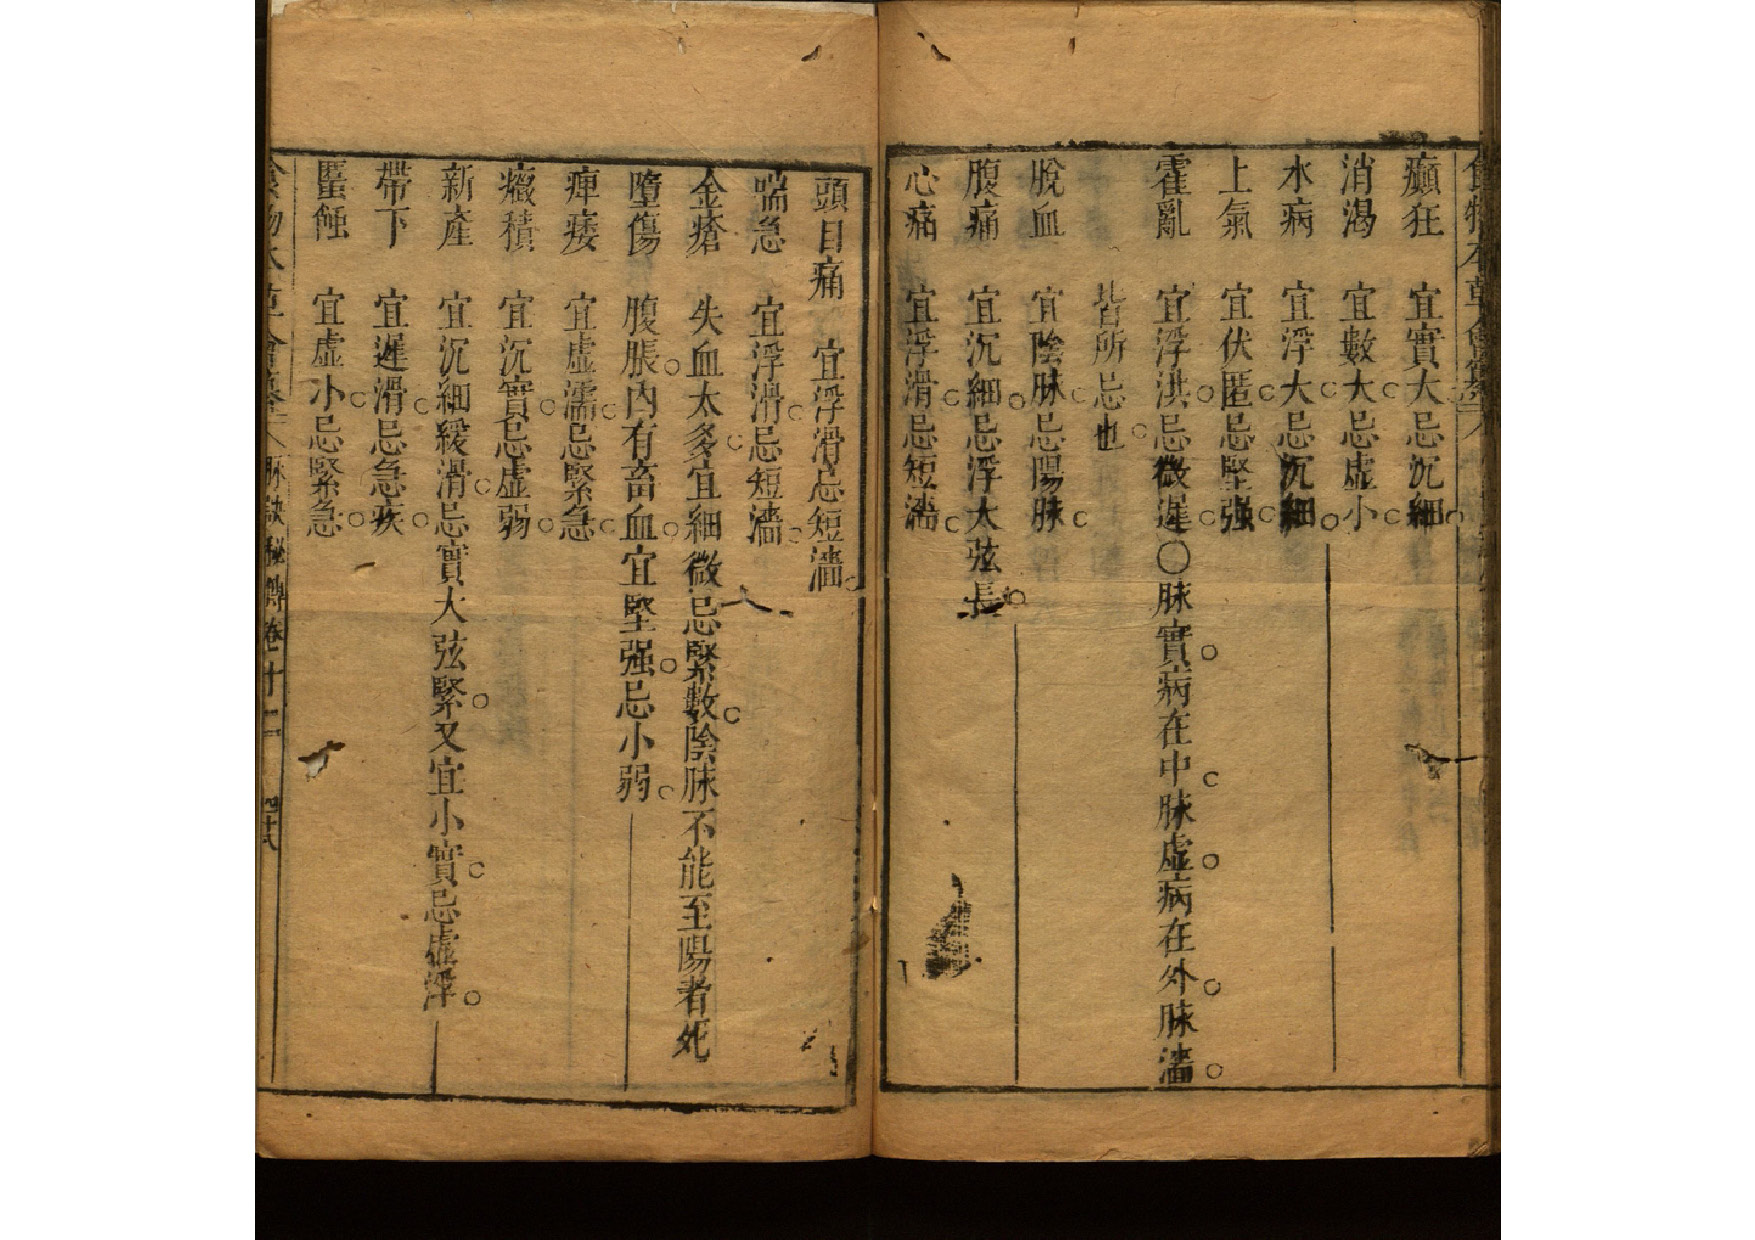 癲狂　宜實大忌沉細
消渴　宜數大忌虛小
水病　宜浮大忌沉細
上氣　宜伏匿忌堅强
霍亂　宜浮洪忌微遲○脉實病在中脉虛病在外脉濇
皆所忌也
脫血　宜陰脉忌陽脉
腹痛　宜沉細忌浮大弦長
心痛　宜浮滑忌短濇
頭目痛　宜浮滑忌短濇
喘急　宜浮滑忌短濇
金瘡　失血太多宜細微忌緊數陰脉不能至陽者死
墮傷　腹脹内有畜血宜堅强忌小弱
痺痿　宜虛濡忌緊急
癥積　宜沉實忌虛弱
新產　宜沉細緩滑忌實大弦緊又宜小實忌虛浮
帶下　宜遲滑忌急疾
䘌蝕　宜虛小忌緊急
食物本草會纂　脉訣秘傳卷十二　四十八